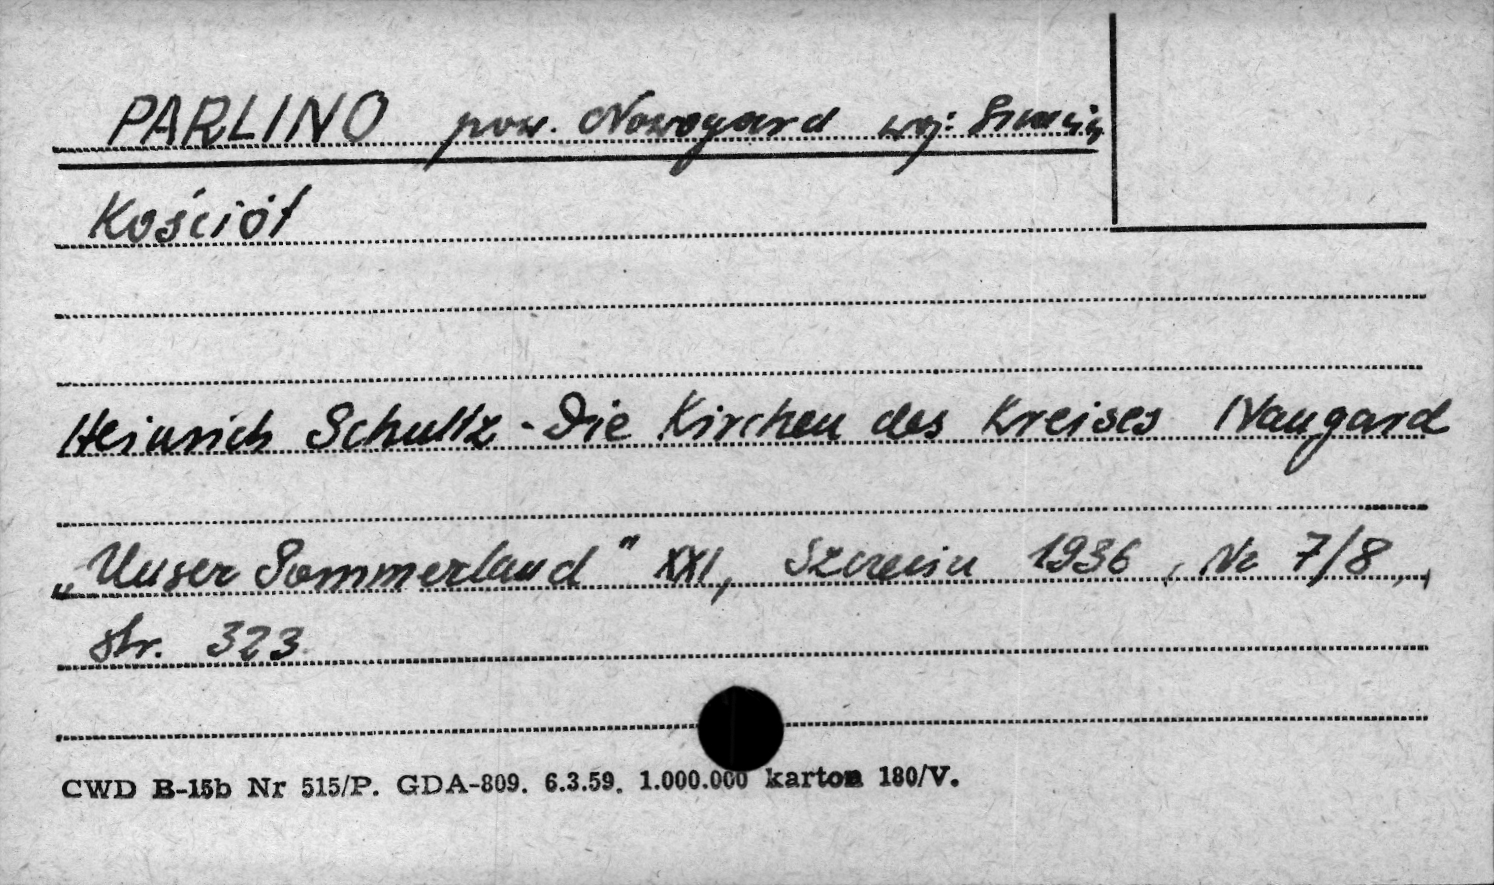 PARLINO pow. Nowogard woj:
Kościół
Heinrich Schultz - Die Kirchen des Kreises Naugard
„Unser Pommerland" XXI, Szczecin 1936, Nr 7/8,
str. 323
CWD B-15b Nr 515/P. GDA-809. 6.3.59. 1.000.000 karton 180/V.